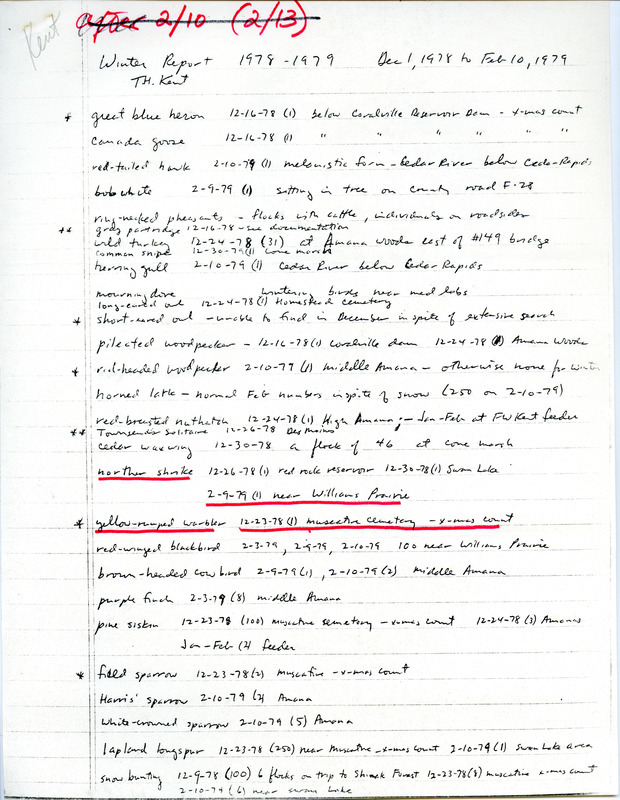 Kent
After 2/10 (2/13)
Winter Report 1978-1979 Dec 1, 1978 to Feb 10, 1979
T.H. Kent
* great blue heron 12-16-78 (1) below Coralville Reservoir Dam - x-mas count
Canada goose 12-16-78 (1) " " " " "
red-tailed hawk 2-10-79 (1) melanistic form - Cedar River below Cedar Rapids
bobwhite 2-9-79 (1) sitting in tree on County road F-28
ring-necked pheasants - flocks with cattle, individuals on roadsides
** gray partridge 12-16-78 - see documentation
wild turkey 12-24-78 (31) at Amana woods east of #149 bridge
common snipe 12-30-79 (1) cone marsh
herring gull 2-10-79 (1) Cedar River below Cedar Rapids
mourning dove wintering birds near med labs
long-eared owl 12-24-78 (1) Homestead Cemetery
* short-eared owl - unable to find in December in spite of extensive search
pileated woodpecker - 12-16-78 (1) Coralville dam 12-24-78 (1) Amana Woods
* red-headed woodpecker 2-10-79 (1) middle Amana - otherwise none for winter
horned lark - normal Feb numbers in spite of snow (250 on 2-10-79)
red-breasted nuthatch 12-24-78 (1) High Amana; - Jan-Feb at FW Kent feeder
** Townsend's Solitaire 12-26-78 Des Moines
cedar waxwing 12-30-78 a flock of 46 at cone marsh
norther shrike 12-26-78 (1) red rock reservoir 12-30-78 (1) Swan Lake
2-9-79 (1) near Williams Prairie
* yellow-rumped warbler 12-23-78 (1) muscatine cemetery - x-mas count
red-winged blackbird 2-3-79, 2-9-79, 2-10-79 100 near Williams Prairie
brown-headed cowbird 2-9-79 (1), 2-10-79 (2) Middle Amana
purple finch 2-3-79 (8) middle Amana
pine siskin 12-23-78 (100) muscatine semetery - x-mas count 12-24-78 (3) Amanas
Jan-Feb (2) feeder
* field sparrow 12-23-78 (2) muscatine - x-mas count
Harris' sparrow 2-10-79 (2) Amana
white-crowned sparrow 2-10-79 (5) Amana
lapland longspur 12-23-78 (250) near Muscatine - x-mas count 2-10-79 (1) Swan Lake area
snow bunting 12-9-78 (100) 6 flocks on trip to Shimek Forest 12-23-78 (8) muscatine x-mas count
2-10-79 (6) near swan Lake